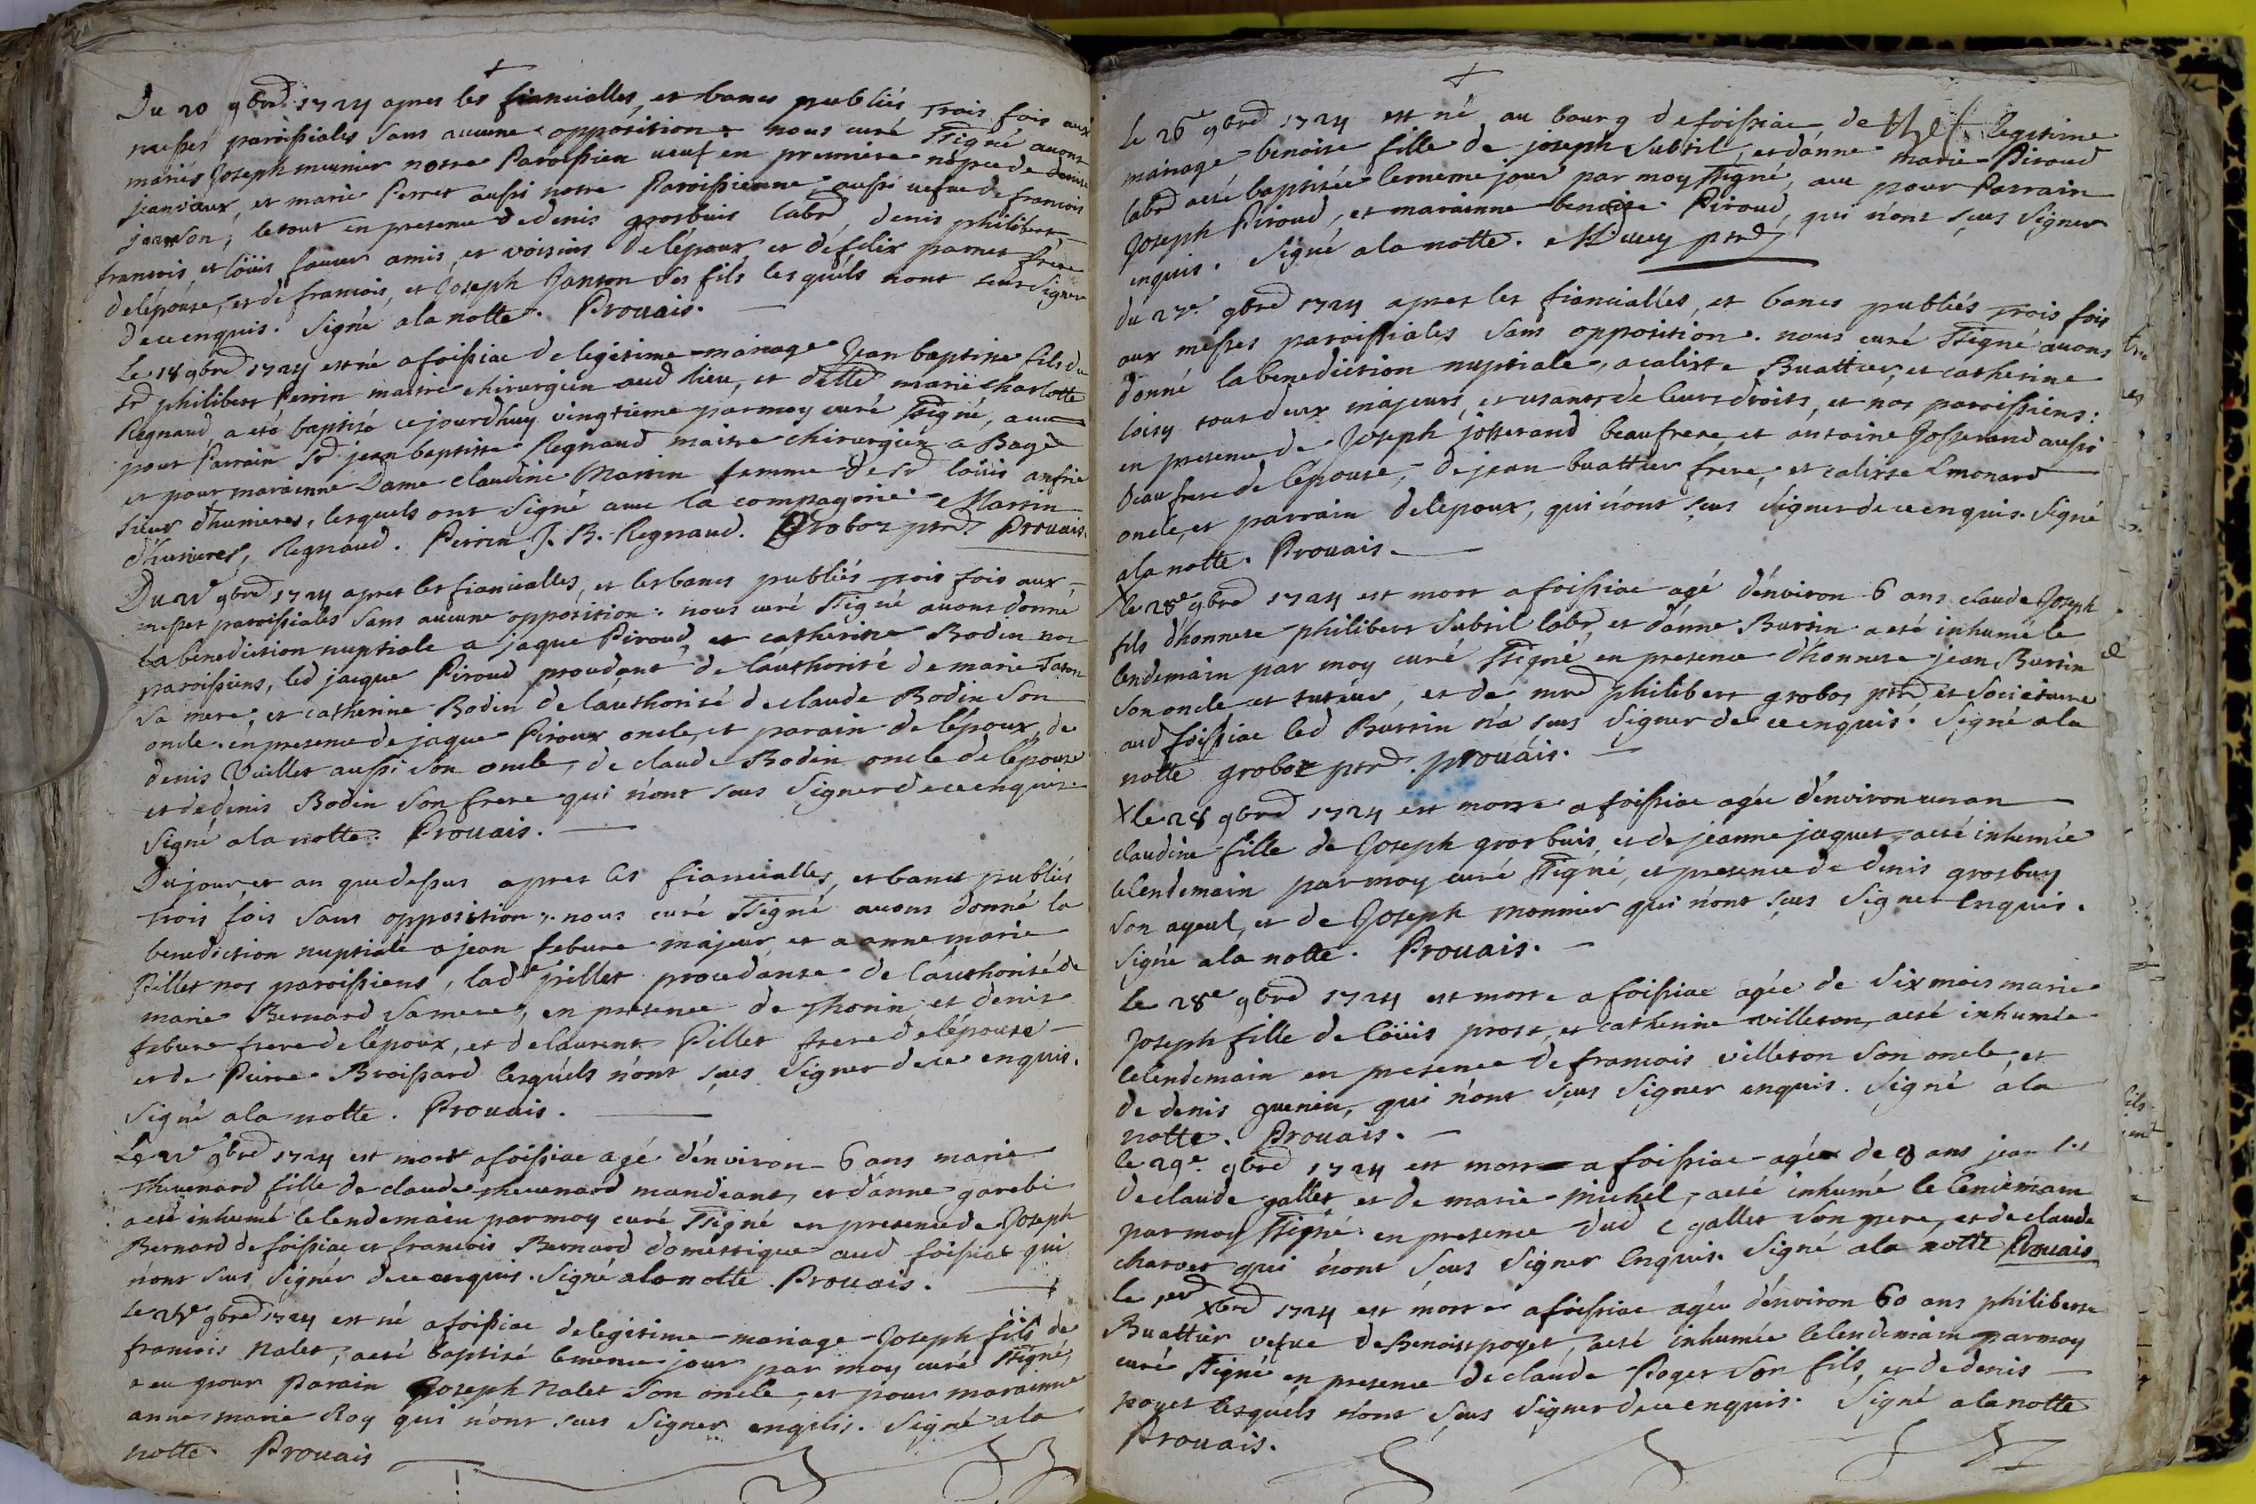 Du 20 9bre 1724 apres les fiancialles, et bancs publiés trois fois aux
messes paroissiales sans aucune opposition nous curé ssigné avons
mariés Joseph meunier notre Paroissien veuf en premiere nopce de denise
janvaux, et marie Perret aussi notre Paroissienne aussi vefue de francois
janson, le tout en presence de denis grosbuis labr, denis philibert
francois, et löuis favier amis et voisins de lépoux et de felix parret frere
de lépouse, et de francois, et Joseph Janson ses fils lesquels nont sçeus signer
de ce enquis. Signé a la notte. Prouais.
Le 18 9bre 1724 est né a foissiac de legitime mariage Jean baptiste fils du
sr philibert Perrin maitre chirurgien aud lieu, et delle marie charlotte
Regnaud a eté baptisé ce jourdhuy vingtieme par moy curé ssigné, a eu
pour Parrain sr jean baptiste Regnaud maitre chirurgien a Bagé
et pour marainne Dame claudine Martin femme de sr löuis anfrie
sieur d'hunieres, lesquels ont signé avec la compagnie. Martin
d'hunieres, Regnaud. Perrin J. B. Regnaud. Groboz ptre Prouais.
Du 21e 9bre 1724 apres les fiancialles, et les bancs publiés trois fois aux
messes paroissiales sans aucune opposition: nous curé ssigné avons donné
la benediction nuptiale a jaque Piroud et catherine Bodin nos
paroissiens, led jacque Piroud procedant de lauthorité de marie Taton
sa mere, et catherine Bodin de láuthorité de claude Bodin son
oncle. en presence de jaque Piroux oncle, et parain de lépoux, de
denis Vuillet aussi son oncle, de claude Bodin oncle de lépouse
et de denis Bodin son frere qui n'ont sceus signer de ce enquis
signé a la notte. Prouais.
Du jour, et an que dessus apres les fiancialles, et bancs publiés
trois fois sans opposition, nous curé ssigné avons donné la
benediction nuptiale a jean febure majeur, et a anne marie
Pillet nos paroissiens, lade pillet procedante de láuthorité de
marie Bernard sa mere, en presence de thonin, et denis
febure frere de lépoux, et de laurent Pillet frere de lépouse
et de Pierre Broissard lesquels n'ont sçeus signer de ce enquis.
signé a la notte. Prouais.
Le 21e 9bre 1724 est mort a foissiac agé d'énviron 6 ans marie
thevenard fille de claude thevenard mandiant, et d'anne garebi
a eté inhumé le lendemain par moy curé ssigné en presence de Joseph
Bernard de foissiac et francois Bernard domestique aud foissiat qui
n'ont sceus signer de ce enquis. signé a la notte. Prouais.
Le 25e 9bre 1724 est né a foissiac de legitime mariage Joseph fils de
francois Nalet, a eté baptisé le meme jour par moy curé ssigné,
a eu pour Parain Joseph Nalet son oncle, et pour marainne
anne marie Roy qui n'ont sceus signer enquis. signé a la
notte. Prouais
le 26e 9bre 1724 est né au bourg de foissiac de legitime
mariage benoite fille de joseph subtil, et dánne marie Piroud
labr a eté baptisée le meme jour par moy ssigné, a eu pour Parrain
Joseph Piroud, et marainne benoite Piroud, qui n'ont sceus signer
enquis. signé a la notte. ptre
du 27e. 9bre 1724 apres les fiancialles, et bancs publiés trois fois
aux messes paroissiales sans opposition. nous curé ssigné avons
donné la benediction nuptiale, a calixte Buattier, et catherine
loisy tous deux majeurs, et usants de leurs droits, et nos paroissiens:
en presence de Joseph josserand beaufrere, et antoine Josserand aussi
beaufrere de lépouse, de jean buattier frere, et calixte Lmonard
oncle, et parrain de lépoux, qui n'ont sçeus signer de ce enquis. signé
a la notte. Prouais.
x le 28e 9bre 1724 est mort a foissiac agé d'énviron 6 ans claude Joseph
fils d'honnete philibert subtil labr, et dánne Burtin a eté inhumé le
lendemain par moy curé ssigné en presence d'honnete jean Burtin
son oncle et tuteur, et de mre philibert groboz ptre, et societaire
aud foissiac led Burtin n'a sceus signer de ce enquis. signé a la
notte groboz ptre. prouais.
x le 28 9bre 1724 est morte a foissiac agée d'énviron un an
claudine fille de Joseph grosbuis, et de jeanne jaquet, a eté inhumée
le lendemain par moy curé ssigné, et presence de denis grosbuy
son ayeul, et de Joseph monnier qui n'ont sçeus signer enquis.
signé a la notte. Prouais.
Le 28e 9bre 1724 est morte a foissiac agée de six mois marie
Joseph fille de löuis prost, et catherine villeton, a eté inhumée
le lendemain en presence de francois villeton son oncle et
de denis guenin, qui n'ont sçeus signer enquis. signé á la
notte. Prouais.
le 29e. 9bre 1724 est mort a foissiac agé de 8 ans jean fils
de claude gallet et de marie michel, a eté inhumé le lendemain
par moy ssigné en presence dud c gallet son pere, et de claude
charvet qui n'ont sceus signer enquis. signé a la notte Prouais
le per xbre 1724 est morte a foissiac agée d'énviron 60 ans philiberte
Buattier vefue de Benoist poget, a eté inhumée le lendemain par moy
curé ssigné en presence de claude Poget son fils, et de denis
poget lesquels n'ont sçeus signer de ce enquis. signé a la notte
Prouais.